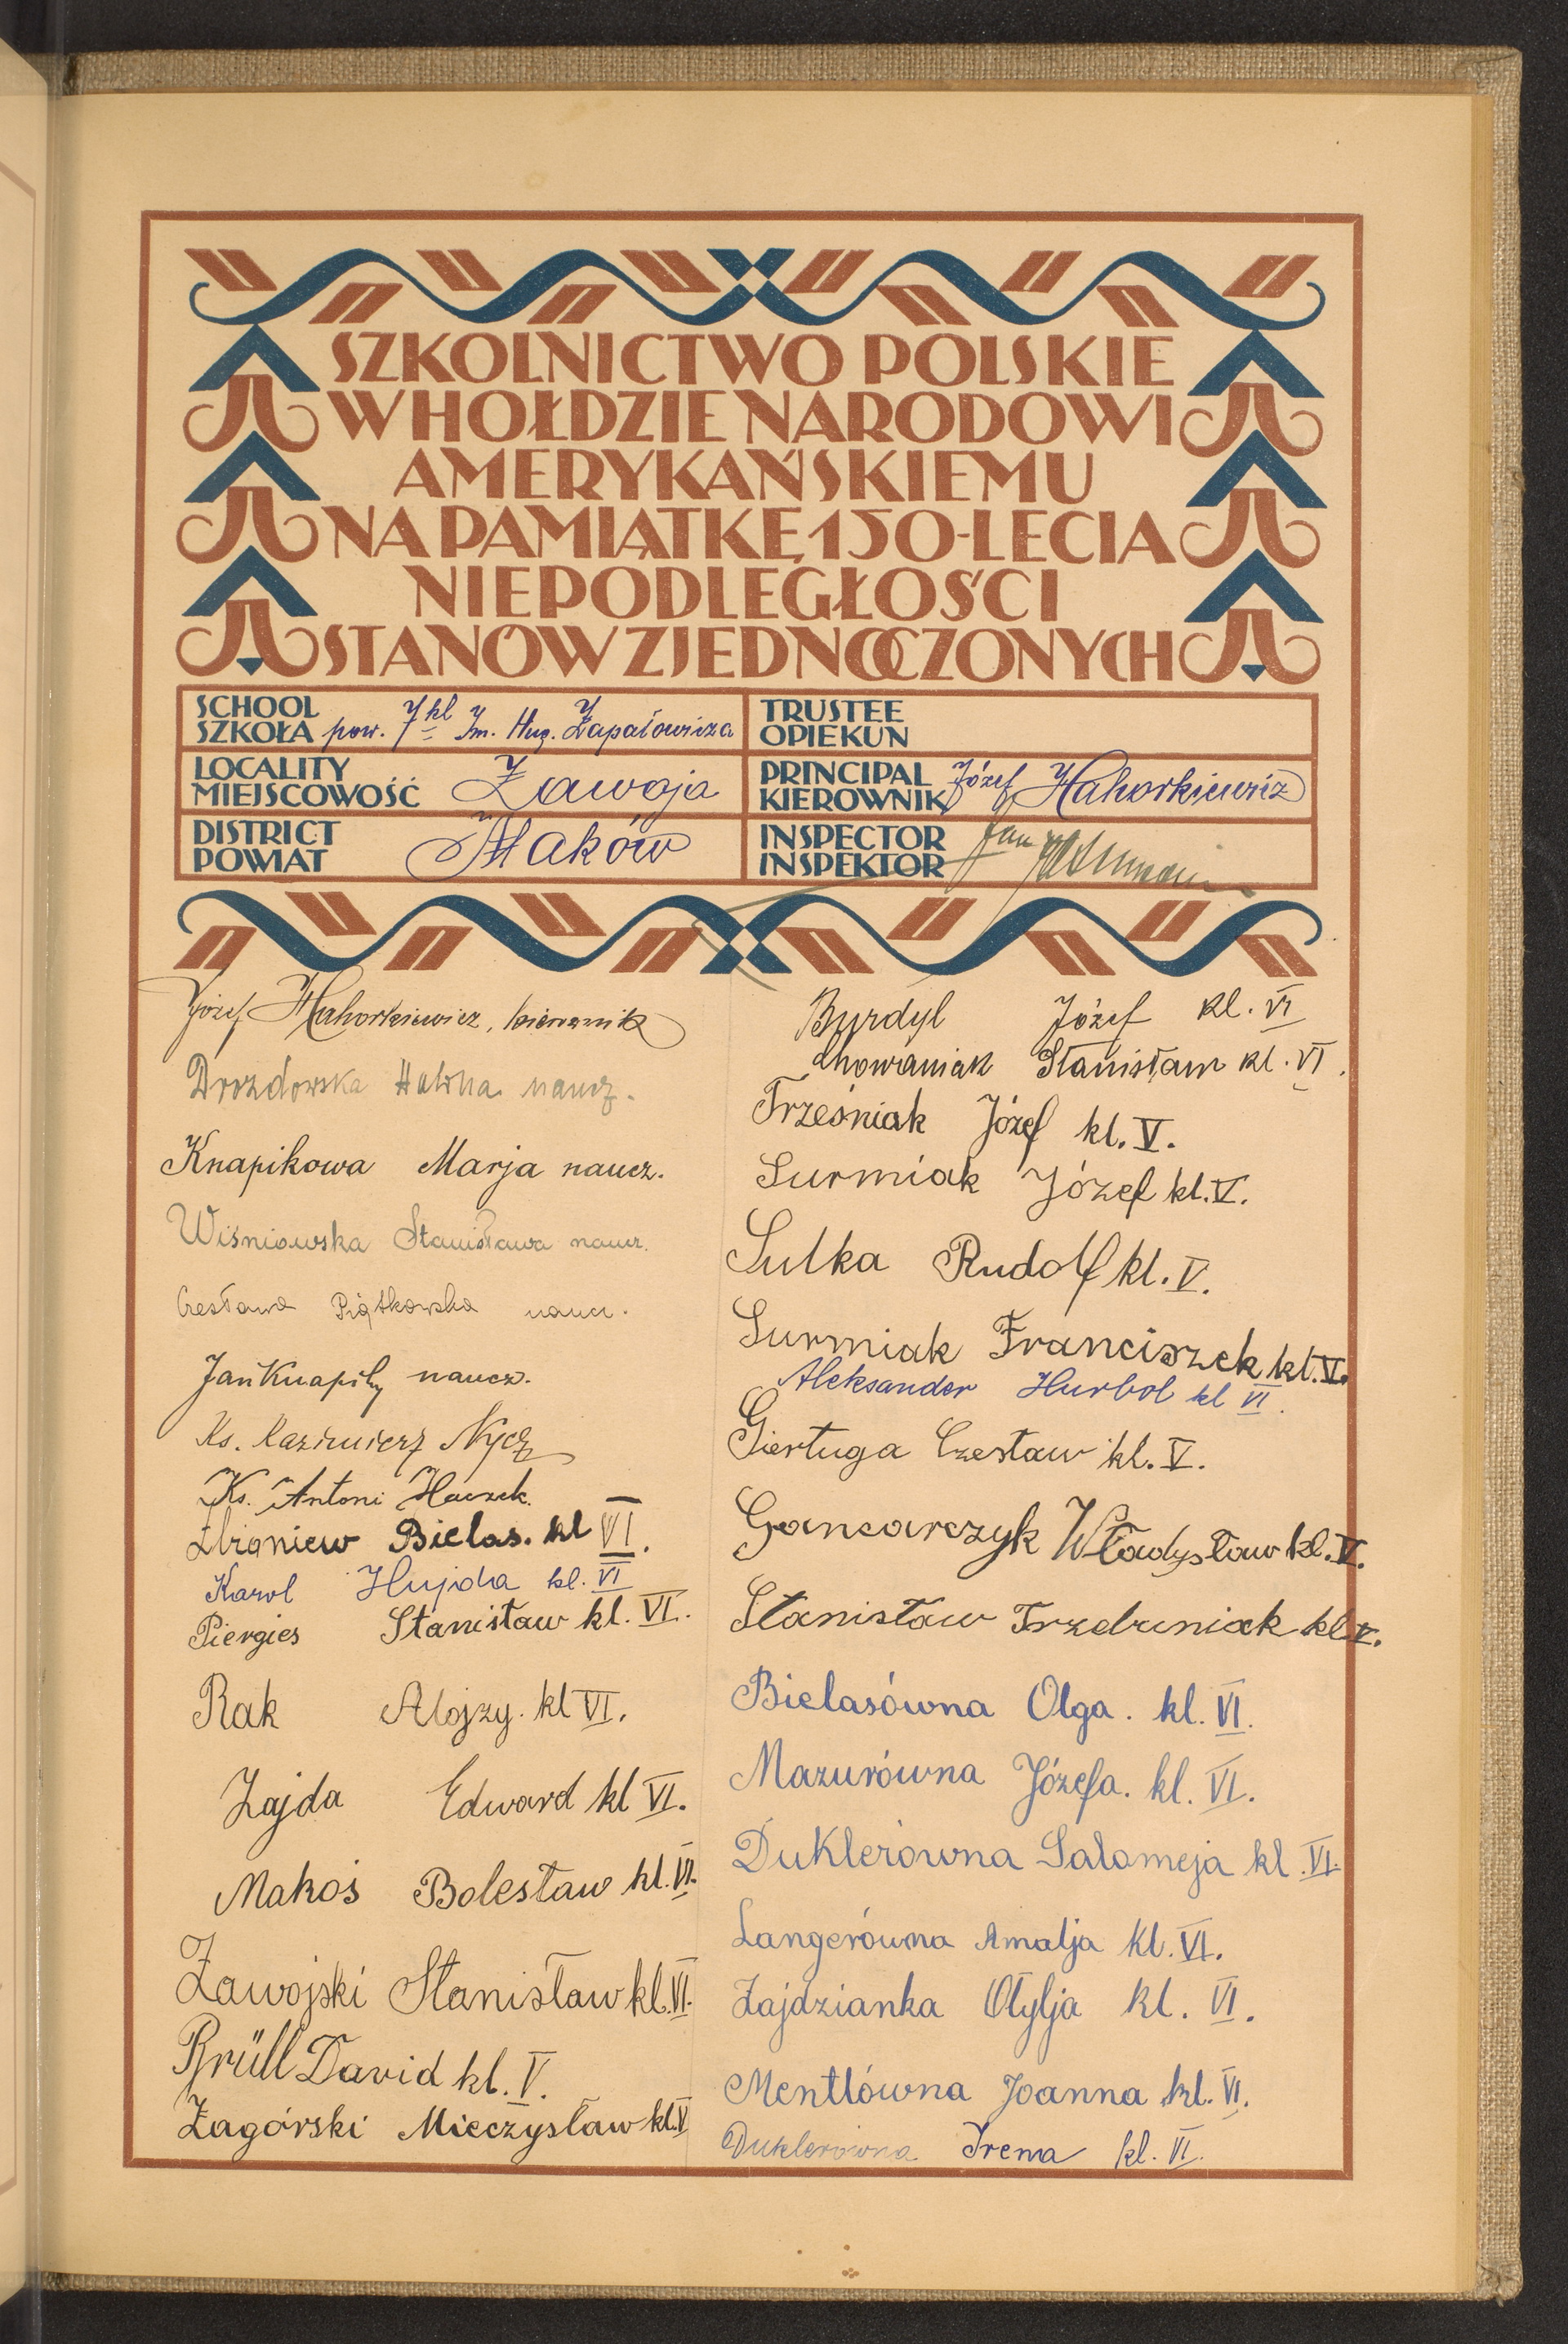 SZKOLNICTWO POLSKIE
W HOŁDZIE NARODOWI
AMERYKAŃSKIEMU
NA PAMIĄTKĘ 150-LECIA
NIEPODLEGŁOŚCI
STANÓW ZJEDNOCZONYCH
SCHOOL
SZKOŁA pow. 7 kl Im. Hug. Zapałowicza
LOCALITY
MIEJSCOWOŚĆ Zawoja
DISTRICT
POWIAT Maków
TRUSTEE
OPIEKUN
PRINCIPAL
KIEROWNIK Józef Mahorkiewicz
INSPECTOR
INSPEKTOR Jan
Józef Mahorkiewicz, kierownik
Drozdowska Halina naucz.
Knapikowa Marja naucz.
Wiśniowska Stanisława naucz.
Czesława Piątkowska naucz.
Jan Knapik naucz.
Ks. Kazimierz Nycz
Ks. Antoni Haczek.
Zbigniew Bielas. kl VI.
Karol Hujda kl. VI
Piergies Stanisław kl. VI.
Rak Alojzy. kl VI.
Zajda Edward kl VI.
Makoś Bolesław kl. VI.
Zawojski Stanisław kl. VI.
Brüll David kl. V.
Zagórski Mieczysław kl. V
Burdyl Józef kl. VI
Chowaniak Stanisław kl. VI.
Trześniak Józef kl. V.
Surmiak Józef kl. V.
Sulka Rudolf kl. V.
Surmiak Franciszek kl. V.
Aleksander Hurbol kl VI.
Giertuga Czesław kl. V.
Gancarczyk Władysław kl. V.
Stanisław Trzebuniak kl. V.
Bielasówna Olga. kl. VI.
Mazurówna Józefa. kl. VI.
Duklerówna Salomeja kl. VI.
Langerówna Amalja kl. VI.
Zajdzianka Otylja kl. VI.
Mentlówna Joanna kl. VI.
Duklerówna Irena kl. VI.